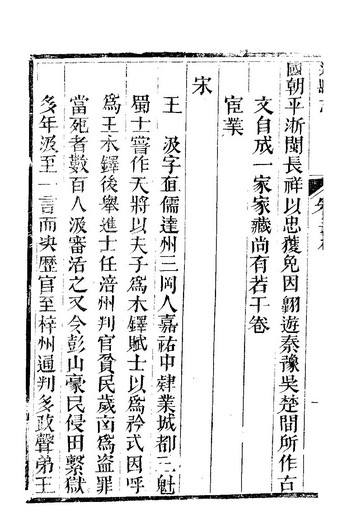 國朝平浙閩長祥以忠獲免因翱遊秦豫吳楚間所作古
文自成一家家藏尚有若干卷
宦業
宋
王汲字直儒達州三岡人嘉祐中肄業城都三魁
蜀士嘗作天將以夫子爲木鐸賦士以爲矜式因呼
爲王木鐸後舉進士任涪州判官貧民歲凶爲盜罪
當死者數百人汲審活之又令彭山豪民侵田繫獄
多年汲至一言而決歷官至梓州通判多政聲弟王